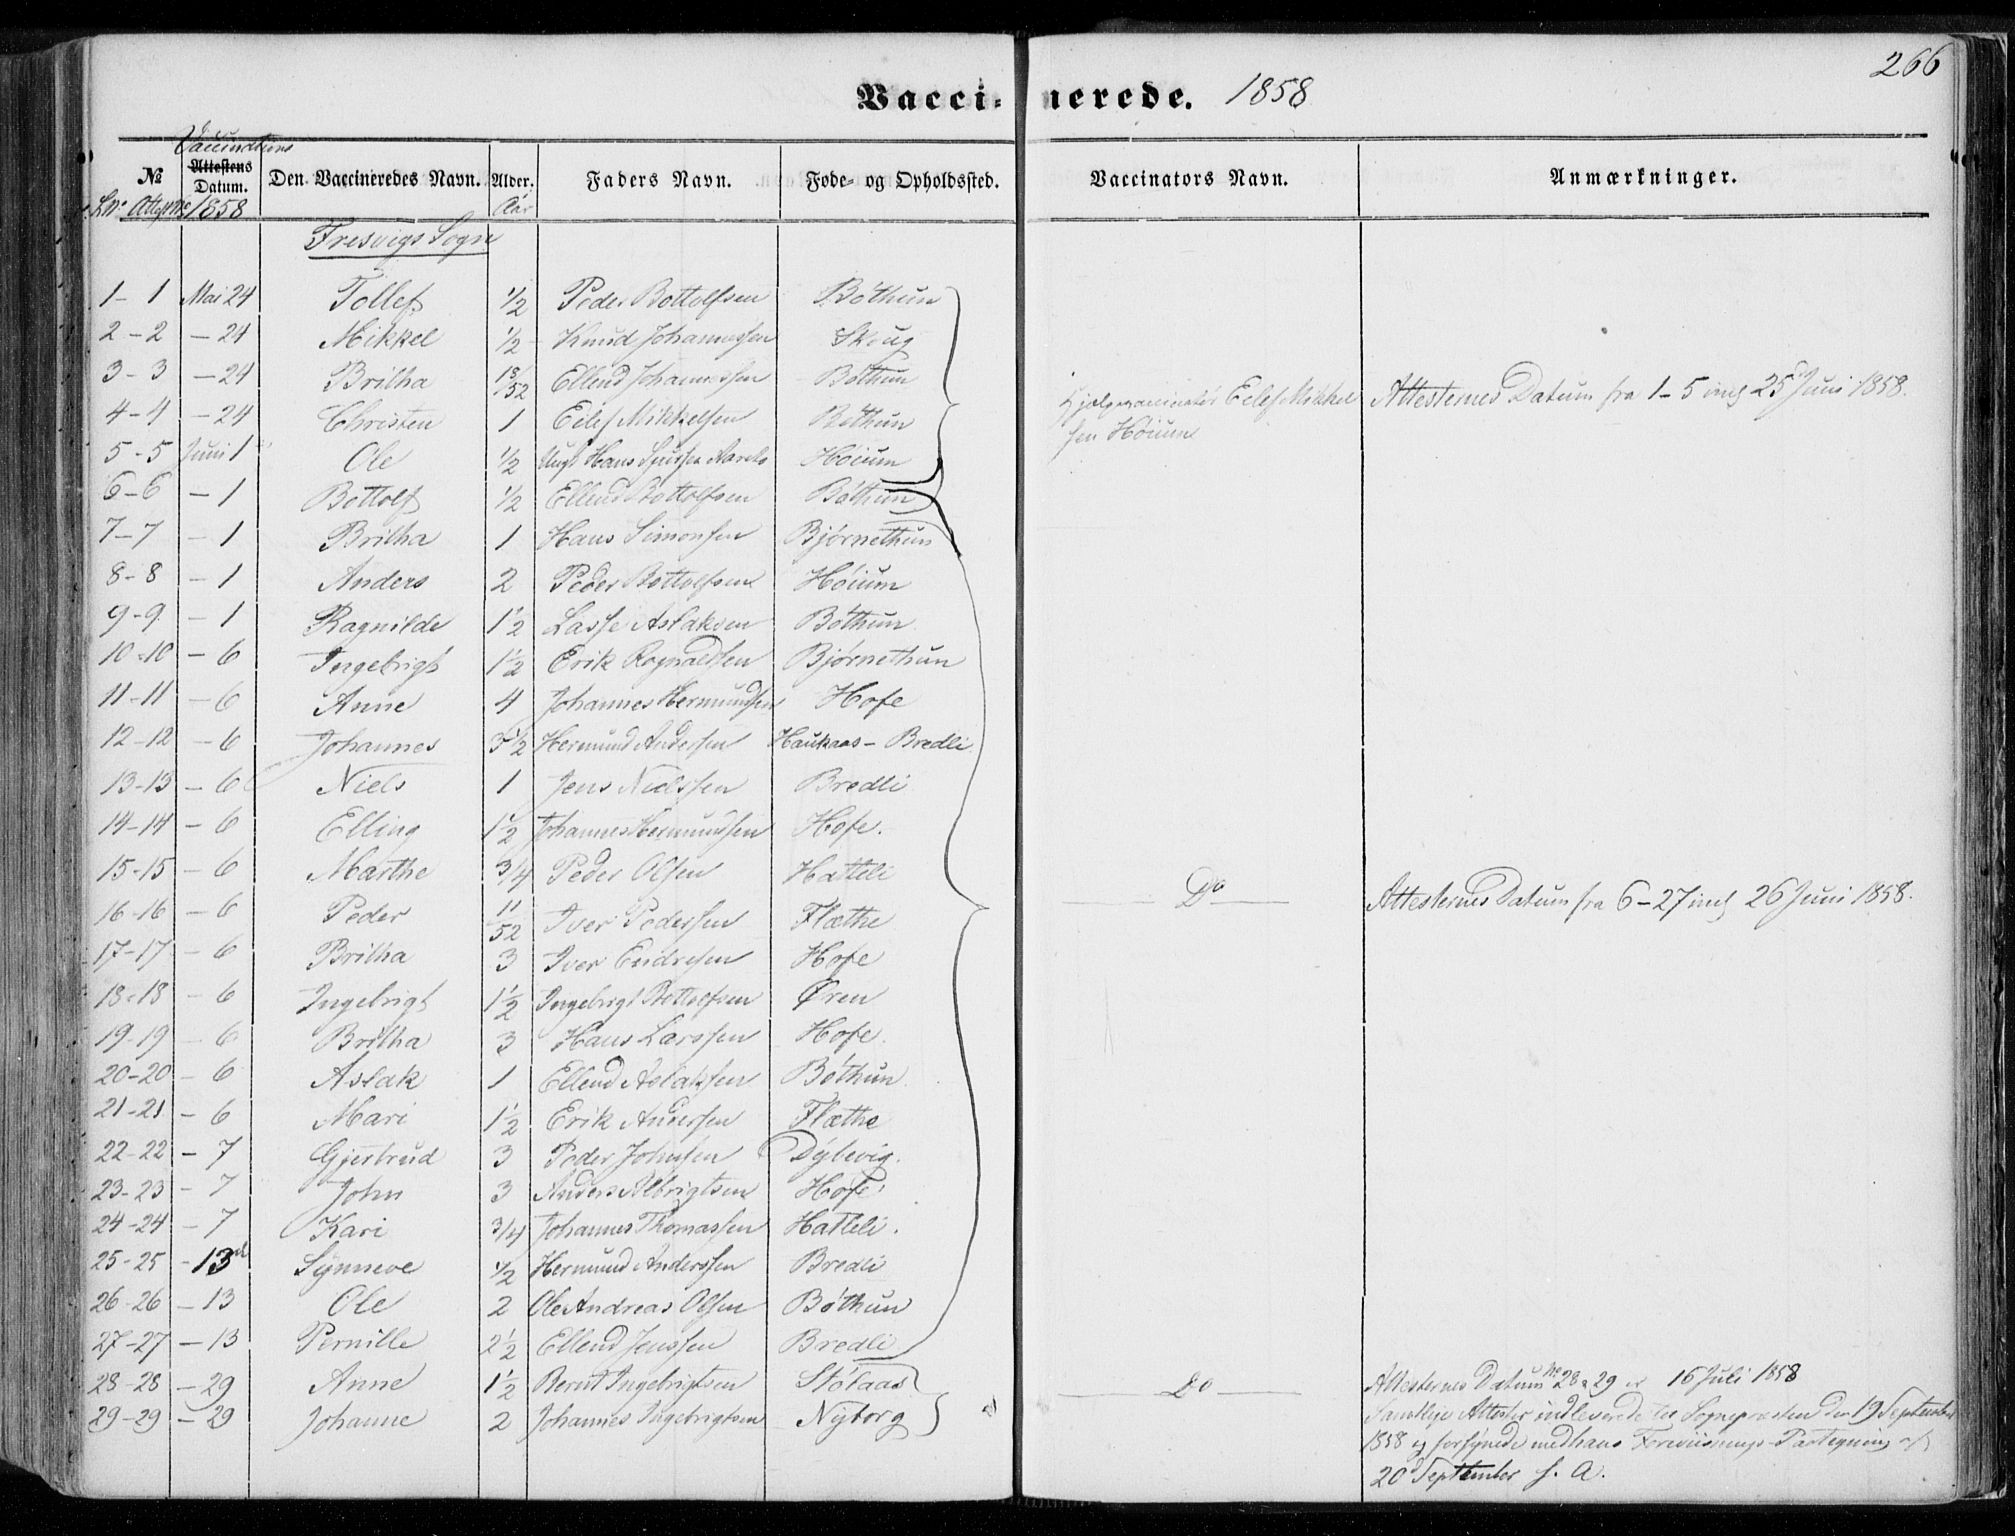 266
Vaccinerede. 1858
№ Attestens Datum. Den Vaccineredes Navn. Alder. Faders Navn. Føde- og Opholdssted. Vaccinators Navn. Anmærkninger.
1858 Aar
Fresvigs Sogn
1-1 Mai 24 Tollef ½ Peder Bottolfsen Bøthun
2-2 - 24 Mikkel ½ Knud Johannessen Skoug
3-3 - 24 Britha 18/52 Ellend Johannessen Bøthun
4-4 - 24 Christen 1 Eilef Mikkelsen Bøthun Hjælpevaccinatør Eilef Mikkel Attesternes Datum fra 1-5 incl 25 Juni 1858.
sen Høium
5-5 Juni 1 Ole ½ Ungk Hans Høium
6-6 - 1 Bottolf ½ Ellend Bottolfsen Bøthun
7-7 - 1 Britha 1 Hans Simonsen Bjørnethun
8-8 - 1 Anders 2 Peder Bottolfsen Høium
9-9 - 1 Ragnilde 1½ Lasse Aslaksen Bøthun
10-10 - 6 Ingebrigt 1½ Erik Rognaldsen Bjørnethun
11-11 - 6 Anne 4 Johannes Hermundsen Hofe
12-12 - 6 Johannes 3½ Hermund Andersen Haukaas - Bredli
13-13 - 6 Niels 1 Jens Nielssen Bredli
14-14 - 6 Elling 1½ Johannes Hermundsen Hofe.
15-15 - 6 Marthe 3/4 Peder Olsen Hatteli
Do Attesternes Datum fra 6-27 incl 26 Juni 1858.
16-16 - 6 Peder 11/52 Iver Pedersen Flæthe
17-17 - 6 Britha 3 Iver Endresen Hofe
18-18 - 6 Ingebrigt 1½ Ingebrigt Bottolfsen Øren
19-19 - 6 Britha 3 Hans Larssen Hofe.
20-20 - 6 Aslak 1 Ellend Aslaksen Bøthun
21-21 - 6 Mari 1½ Erik Andersen Flæthe
22-22 - 7 Gjertrud 3 Peder Johnsen Dylevig.
23-23 - 7 John 3 Anders Albrigtsen Hofe
24-24 - 7 Kari 3/4 Johannes Thomassen Hatteli.
25-25 - 13 Synneve ½ Hermund Anderssen Bredli
26-26 - 13 Ole 2 Ole Andreas Olsen Bøthun
27-27 - 13 Pernille 2½ Ellend Jenssen Bredli
28-28 - 29 Anne 1½ Bernt Ingebrigtsen Stølaas Do Attesternes Datum No 28 & 29 er 16 Juli 1858
29-29 - 29 Johanne 2 Johannes Ingebrigtsen Nyborg Samtlige Attester indleverede til Sognepræsten den 19 September
1858 og forsynede med hans Foreviisnings-Paategning af
20 September s. A.